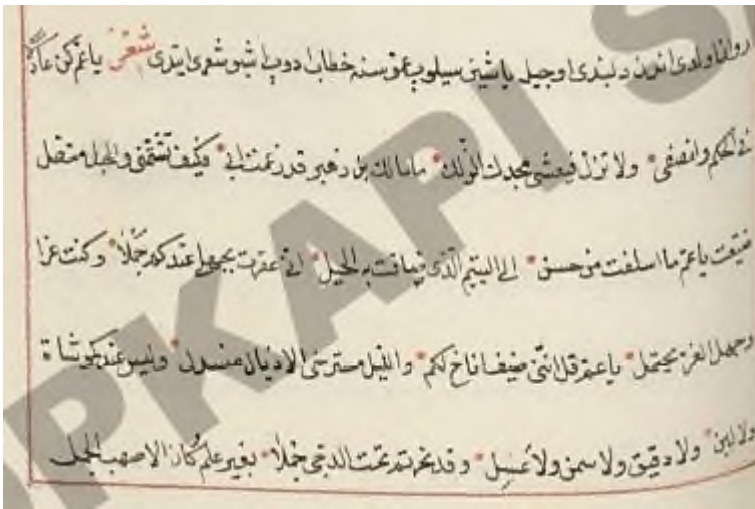 روانا ولدی اندن دلبندی اوجیل یاشین سیلوب عموسنه خطاب ادوب اشبو شعری ایتدی شعر یا عم کن عادلا
فی الحکم وانصفی ولا تزل فیعشی مجدك الزلل ما مالك بن زهیر قد زعمت ابی فکیف تشتمنی والحبل متصل
ضیعت یا عم ما اسلفت من حسن الی الیتیم الذی ضاقت به الحیل انی عقرت بجهلی عندکم جملا وکنت غرا
وجهل الغر یحتمل یا عم قل اننی ضیف اناخ لکم واللیل مسترخی الاذیال منسدل ولیس عندکمو شاة
ولا لبن ولا دقیق ولا سمن ولا عسل وقد نحرت تحت الدجی جملا بغیر علم کان الاصهب الجمل
TOPKAPI SA